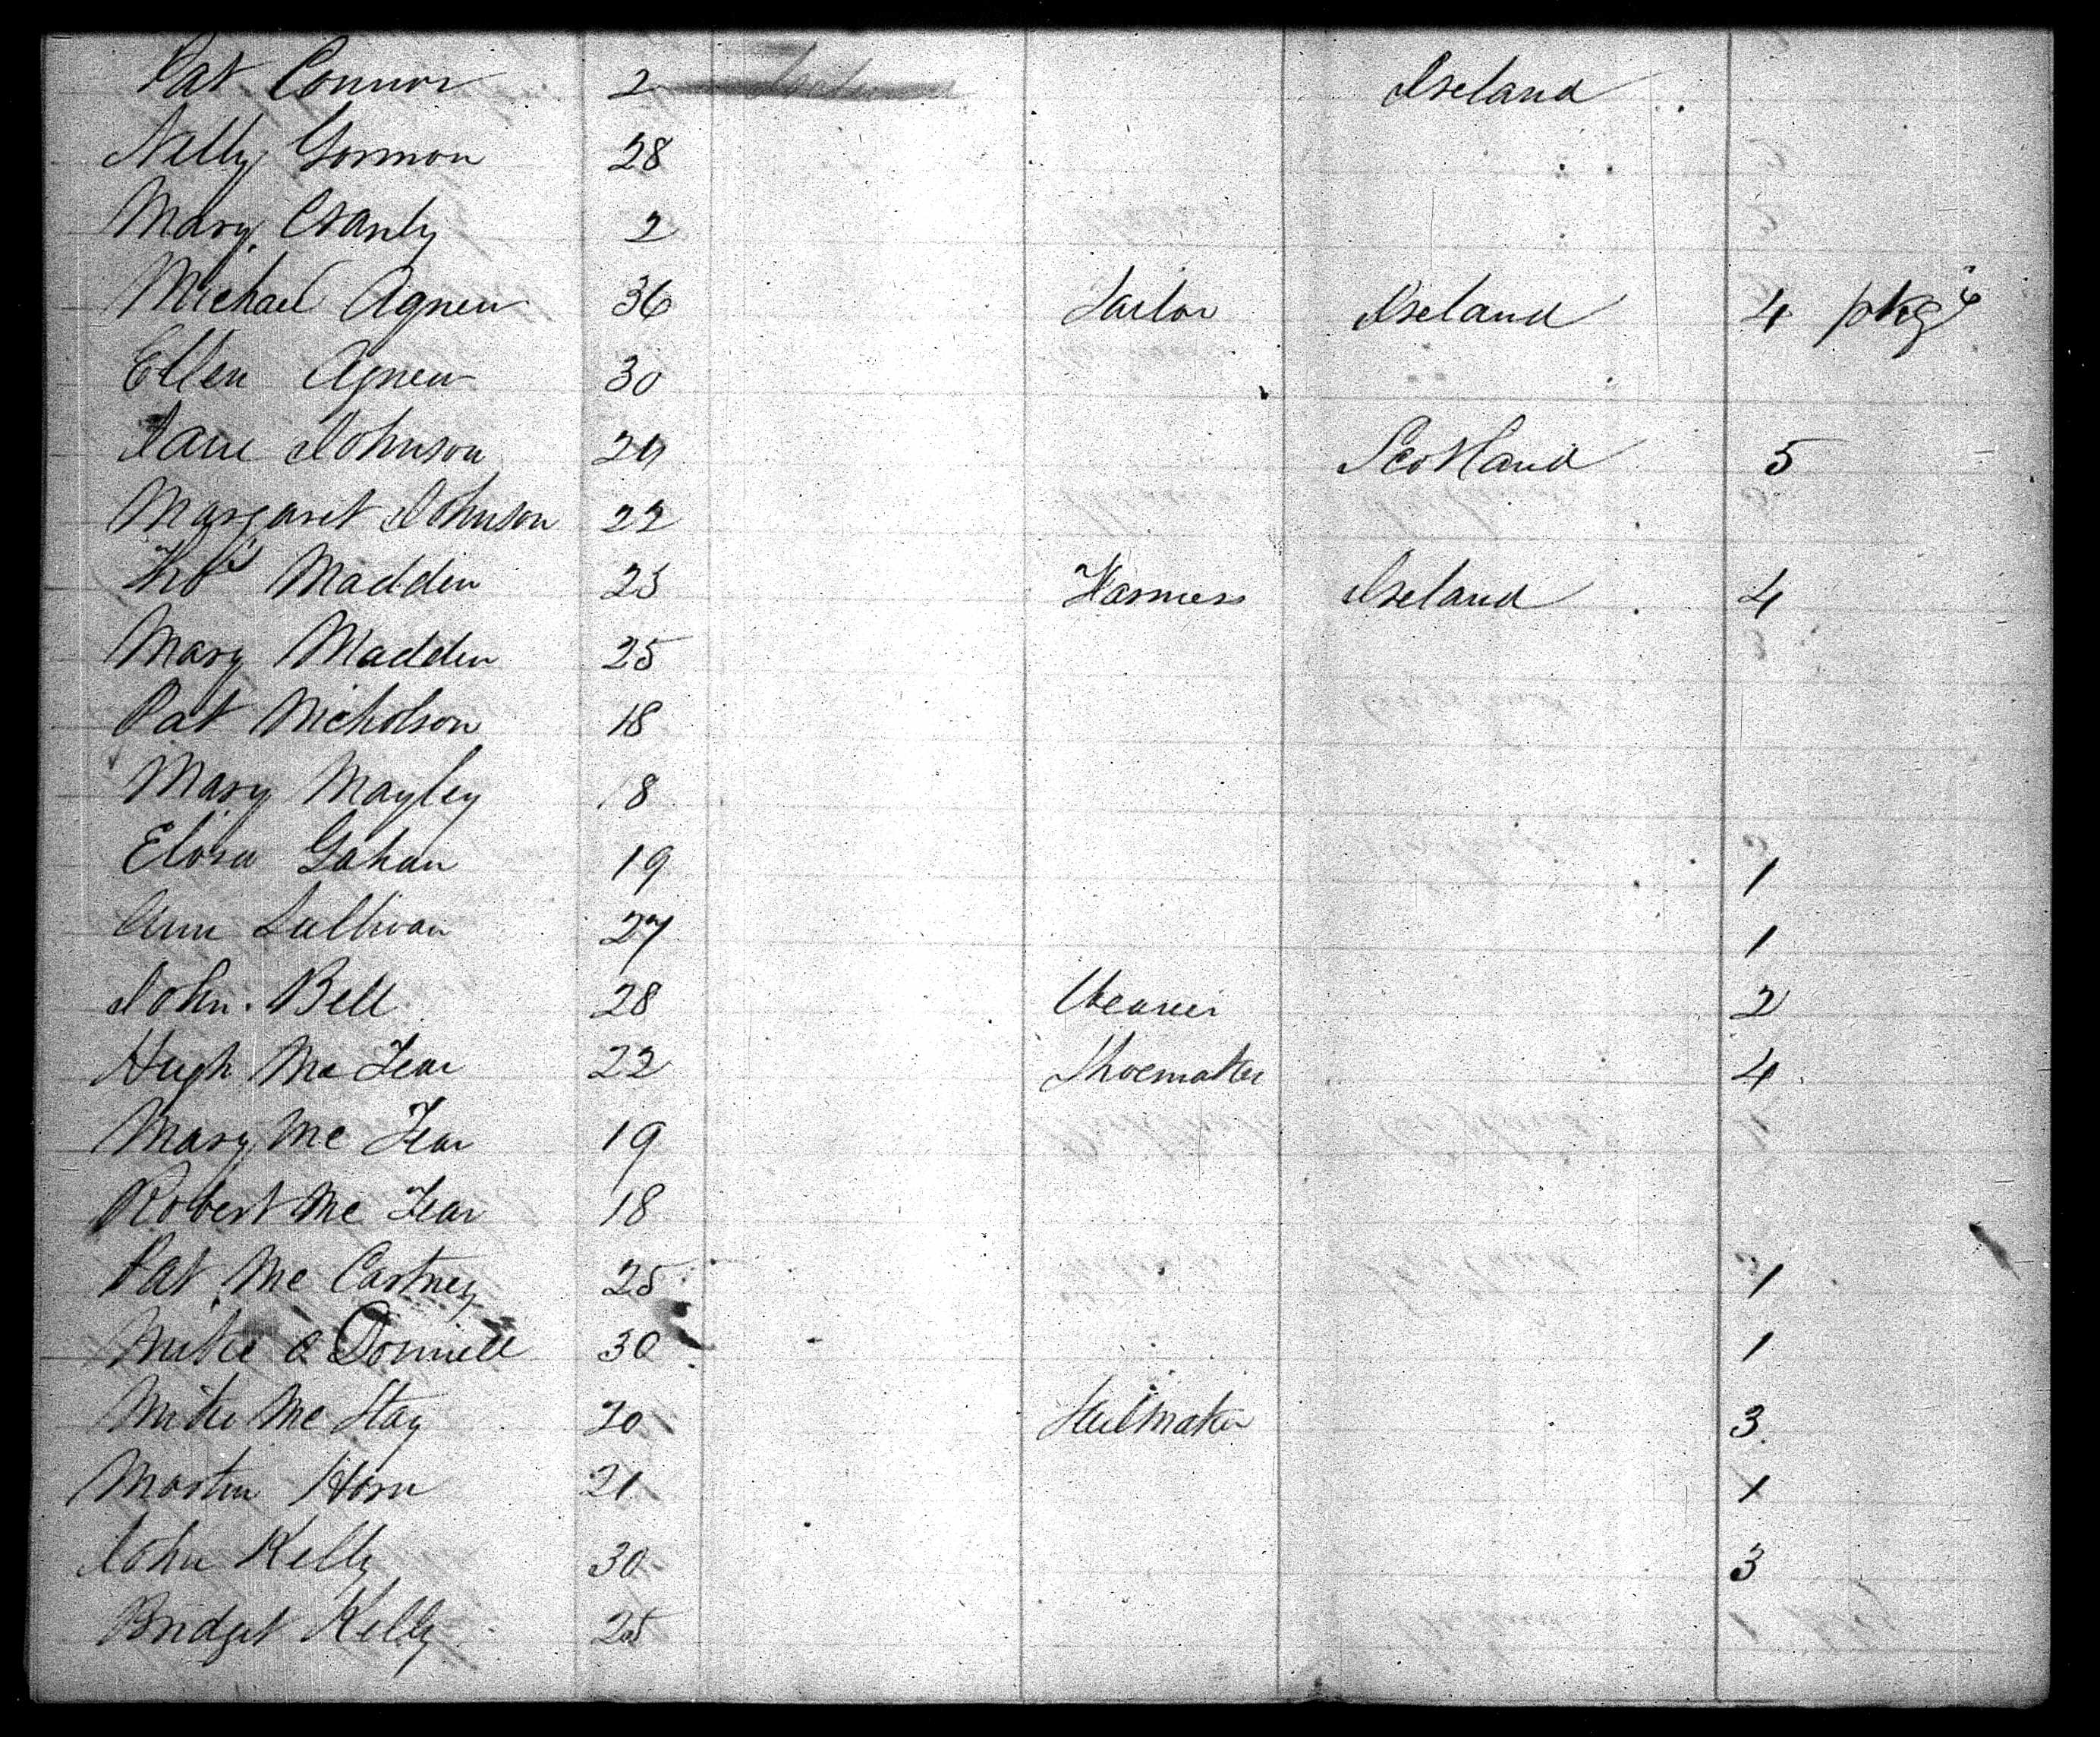 Pat Connor 2 Ireland
Nelly Gormon 28
Mary Cranly 2
Michael Agnew 36 Tailor Ireland 4 pkgs
Ellen Agnew 30
Jane Johnson 24 Scotland 5
Margaret Johnson 22
Thos Madden 25 Harness Ireland 4
Mary Madden 25
Pat Nicholson 18
Mary Mayley 18
Elosa Gahan 19 1
Ann Sullivan 27 1
John Bell 28 Weaver 2
Hugh Mc Fear 22 Shoemaker 4
Mary Mc Fear 19
Robert Mc Fear 18
Pat Mc Cartney 25 1
Mike O Donnell 30 1
Mike Mc Stay 20 Sailmaker 3
Martin Horn 21 1
John Kelly 30 3
Bridget Kelly 25